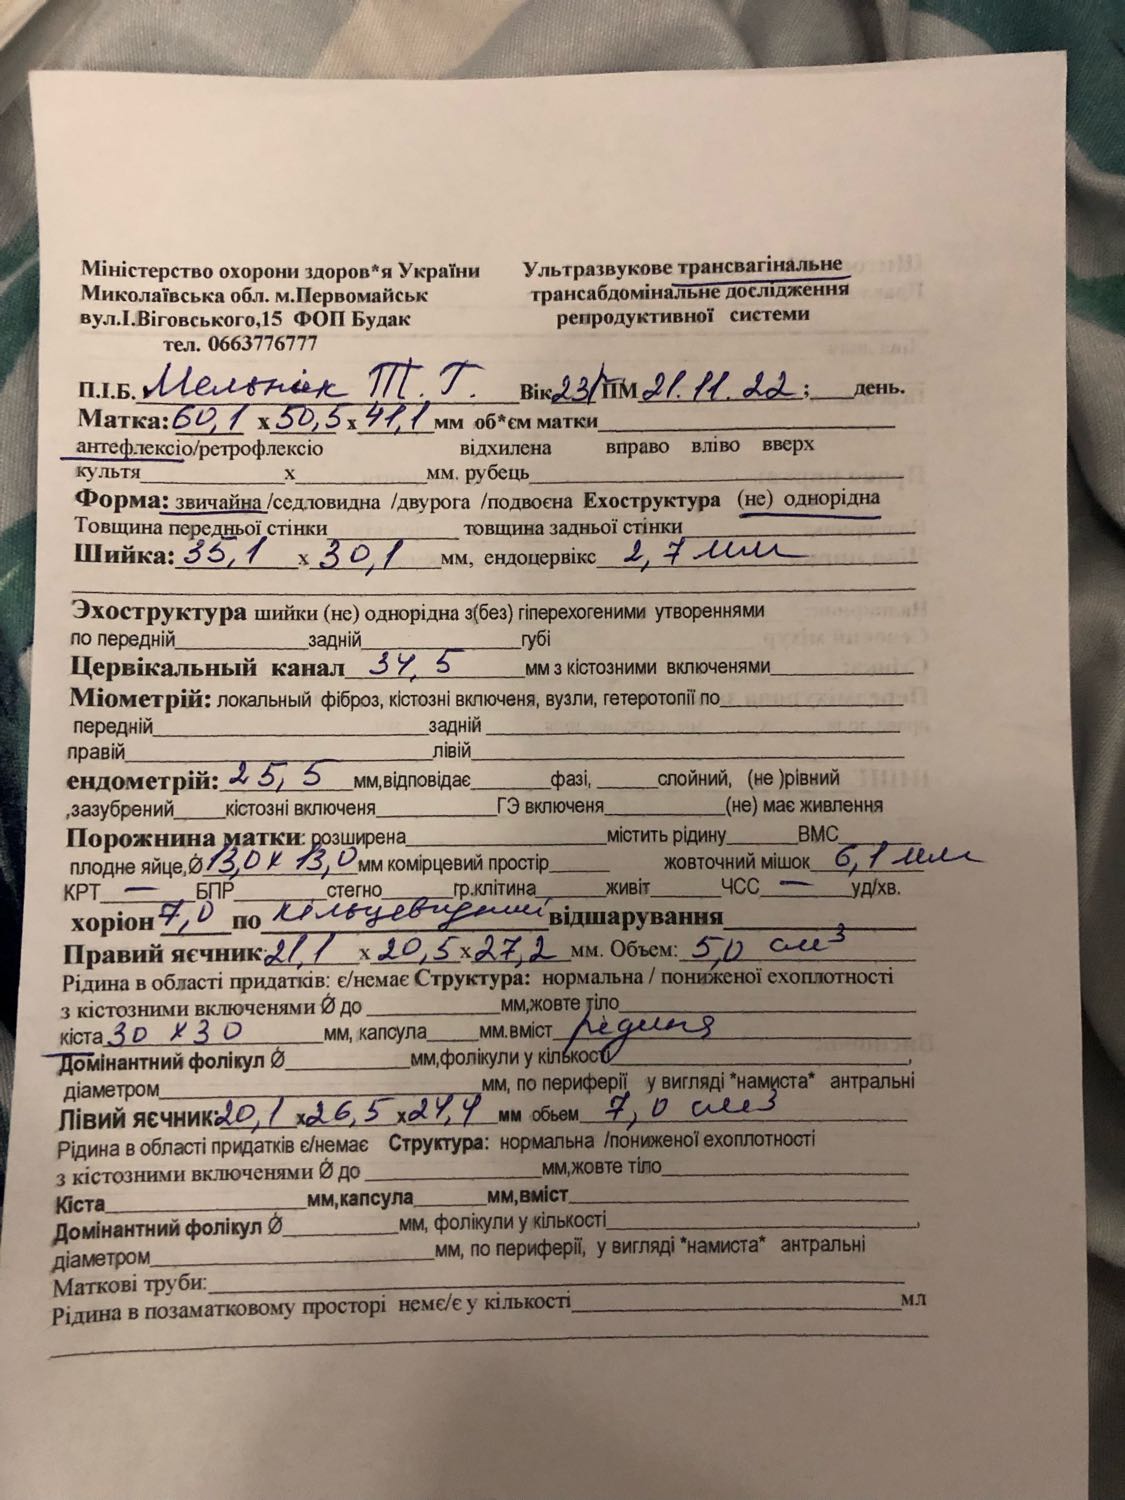 Міністерство охорони здоров*я України
Миколаївська обл. м.Первомайськ
вул.І.Віговського,15 ФОП Будак
тел. 0663776777
Ультразвукове трансвагінальне
трансабдомінальне дослідження
репродуктивної системи
П.І.Б. Мельнік Т. Г. Вік 23 ПМ 21.11.22; ___ день.
Матка: 60,1 х 50,5 х 41,1 мм об*єм матки
антефлексіо/ретрофлексіо відхилена вправо вліво вверх
культя х мм. рубець
Форма: звичайна /седловидна /двурога /подвоєна Ехоструктура (не) однорідна
Товщина передньої стінки товщина задньої стінки
Шийка: 35,1 х 30,1 мм, ендоцервікс 2,7 мм
Эхоструктура шийки (не) однорідна з(без) гіперехогеними утвореннями
по передній задній губі
Цервікальный канал 34,5 мм з кістозними включенями
Міометрій: локальный фіброз, кістозні включеня, вузли, гетеротопії по
передній задній
правій лівій
ендометрій: 25,5 мм,відповідає фазі, слойний, (не )рівний
,зазубрений кістозні включеня ГЭ включеня (не) має живлення
Порожнина матки: розширена містить рідину ВМС
плодне яйце,Ǿ 13,0 х 13,0 мм комірцевий простір жовточний мішок 6,1 мм
КРТ — БПР стегно гр.клітина живіт ЧСС — уд/хв.
хоріон 7,0 по кільцевидний відшарування
Правий яєчник: 21,1 х 20,5 х 27,2 мм. Объем: 5,0 см³
Рідина в області придатків: є/немає Структура: нормальна / пониженої ехоплотності
з кістозними включенями Ǿ до мм,жовте тіло
кіста 30 х 30 мм, капсула мм.вміст рідина
Домінантний фолікул Ǿ мм,фолікули у кількості ,
діаметром мм, по периферії у вигляді *намиста* антральні
Лівий яєчник: 20,1 х 26,5 х 24,4 мм обьем 7,0 см3
Рідина в області придатків є/немає Структура: нормальна /пониженої ехоплотності
з кістозними включенями Ǿ до мм,жовте тіло
Кіста мм,капсула мм,вміст
Домінантний фолікул Ǿ мм, фолікули у кількості ,
діаметром мм, по периферії, у вигляді *намиста* антральні
Маткові труби:
Рідина в позаматковому просторі неме/є у кількості мл